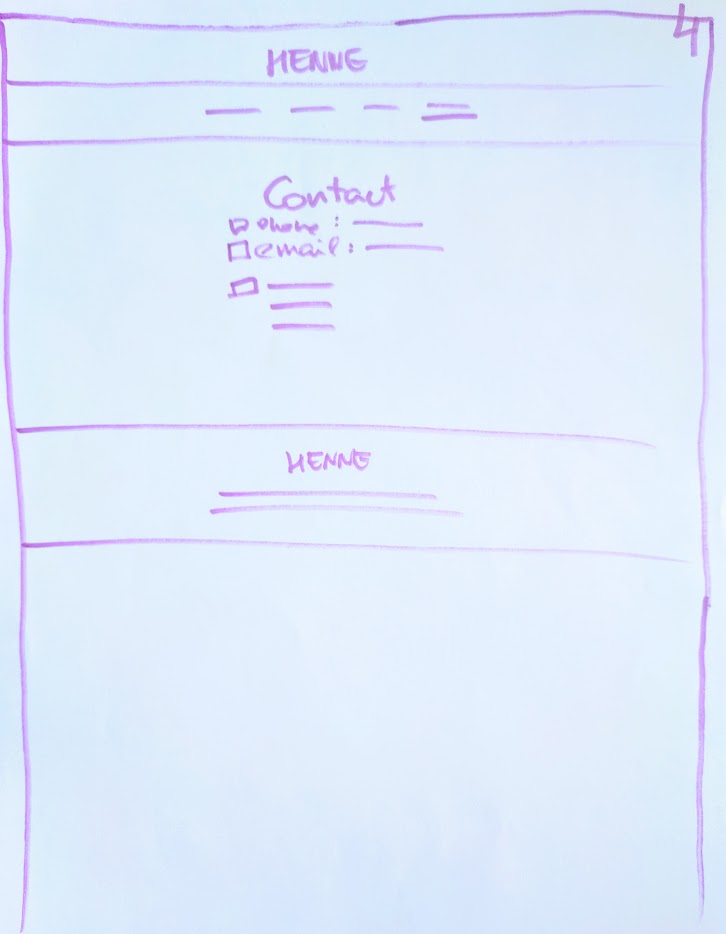 4
HENNE
Contact
phone :
email :
HENNE